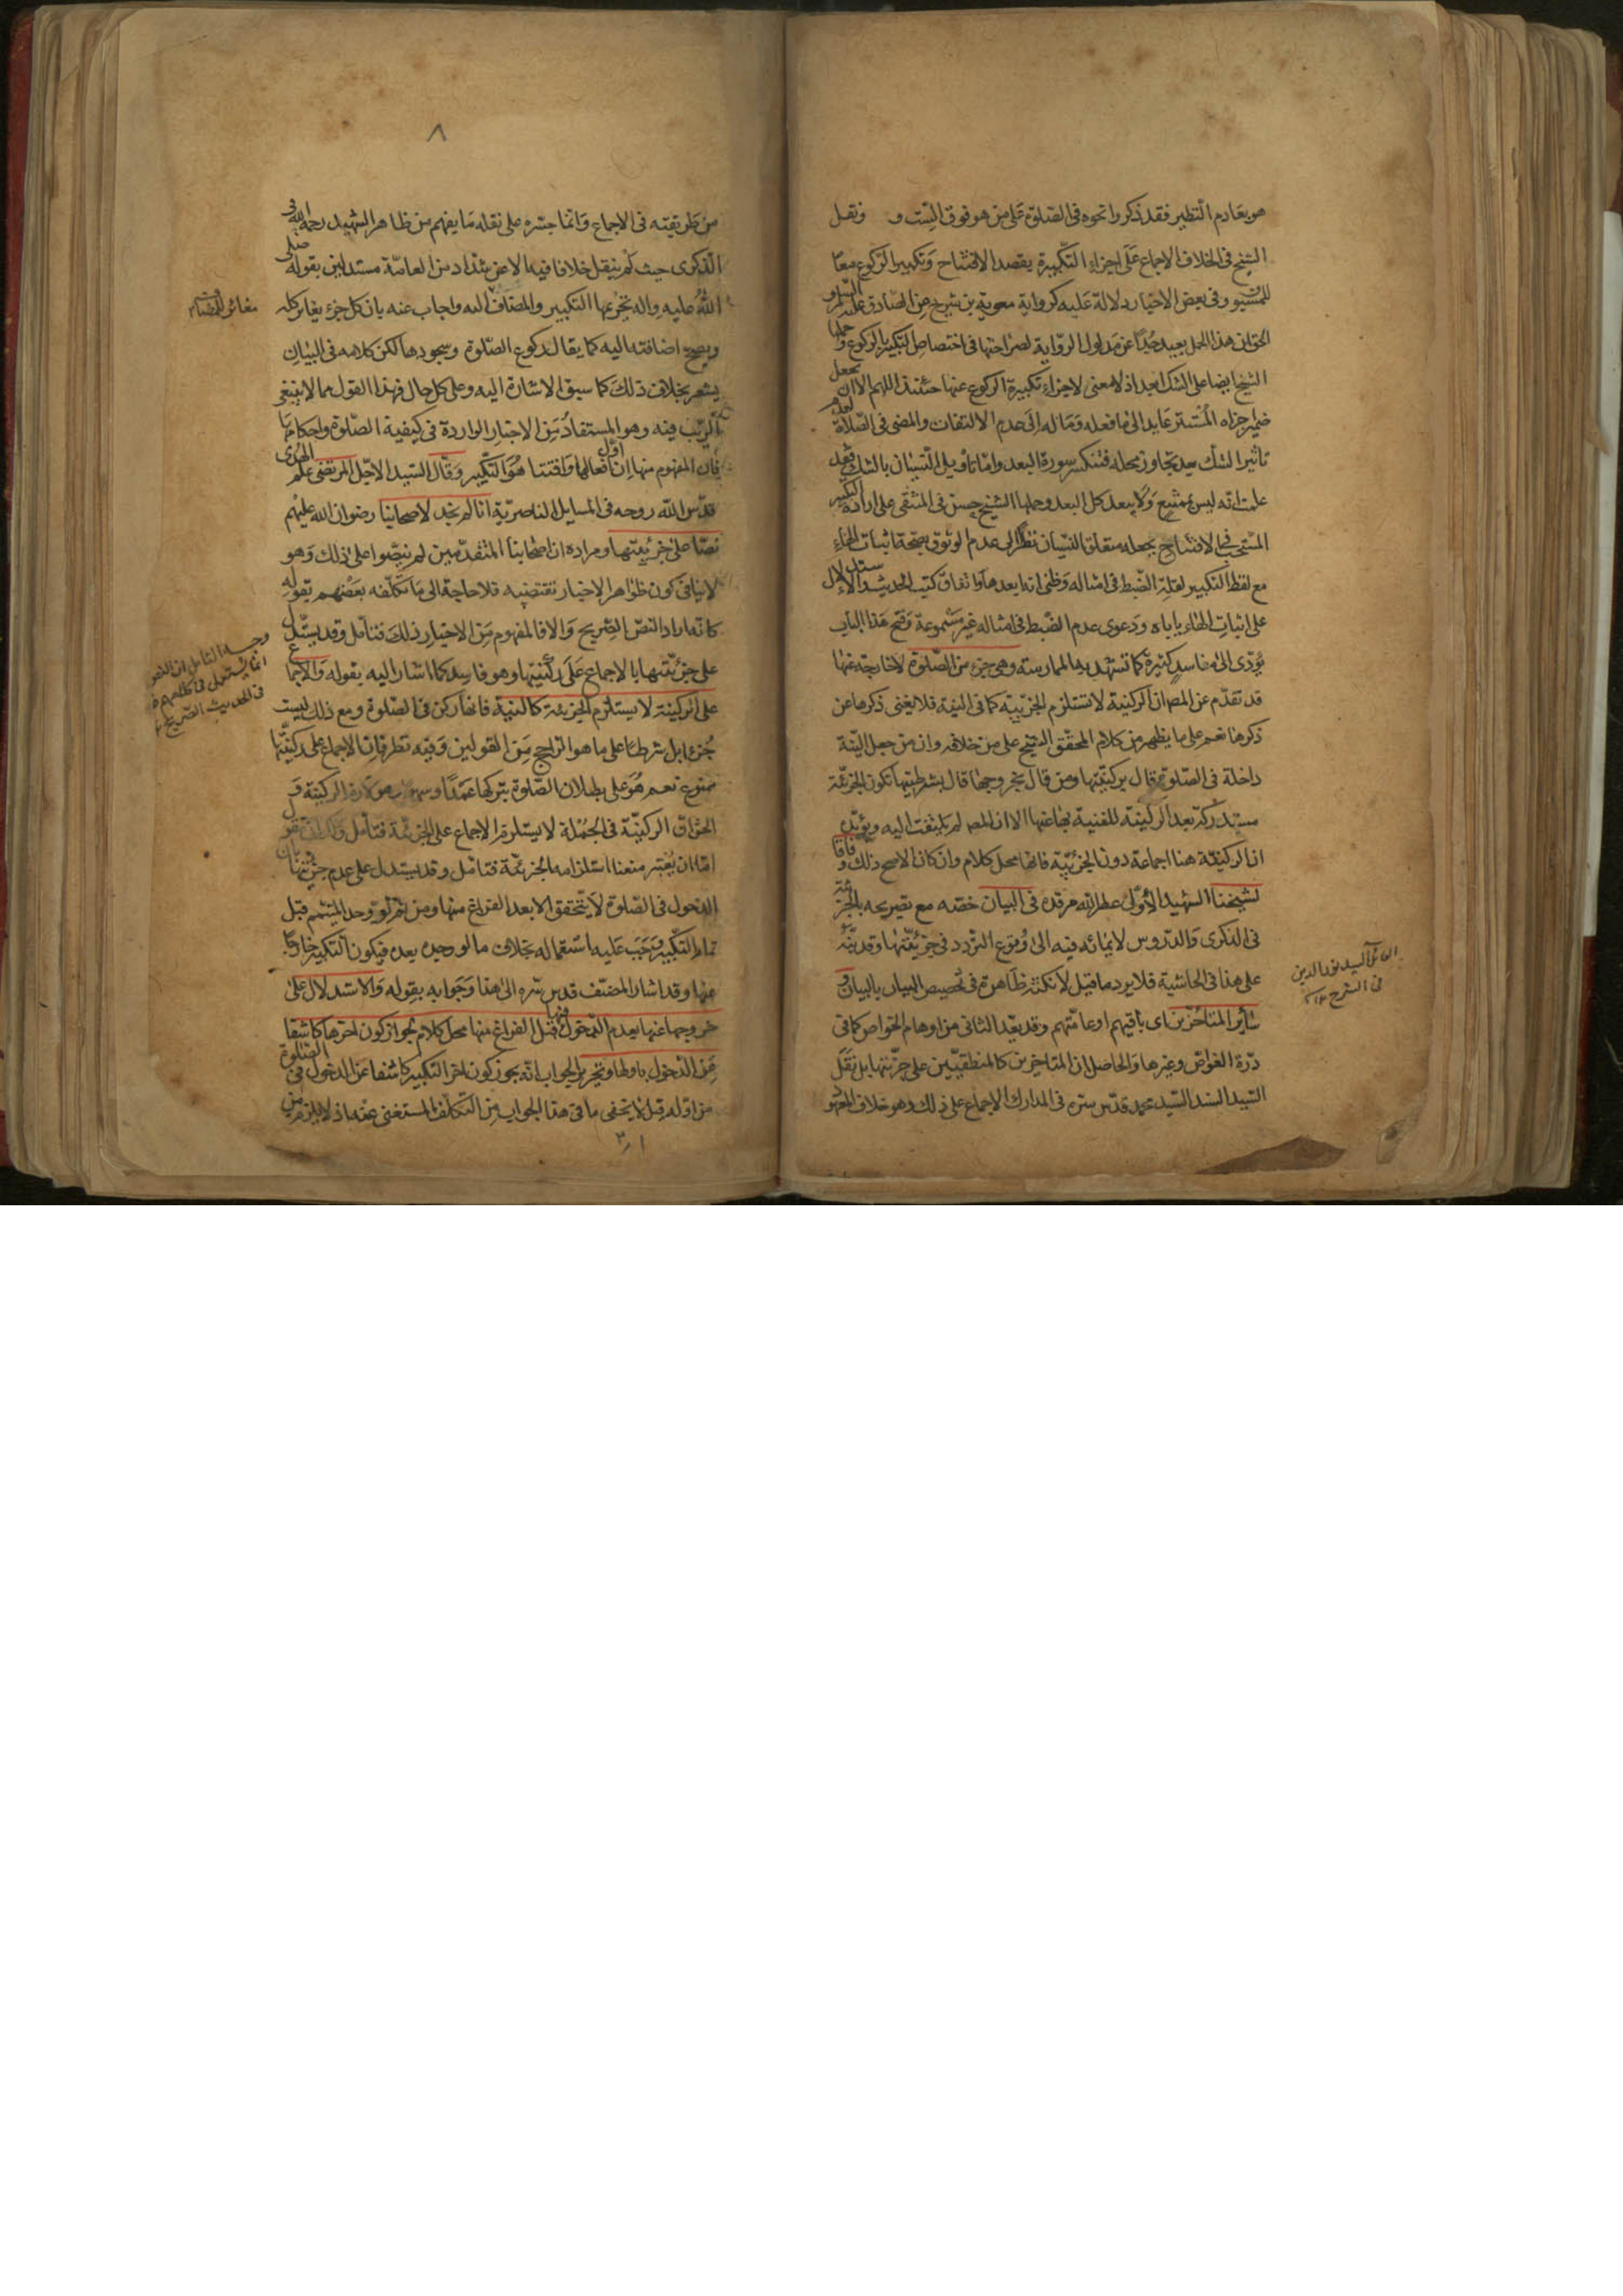 هو بعادم النظير فقد ذكروا نحوه فى الصلوة على من هو فوق الست و ونقل
الشيخ فى الخلاف الاجماع على اجزاء التكبيرة بقصد الافتتاح وتكبير الركوع معا
للمسبوق وفى بعض الاخبار دلالة عليه كرواية معوية بن شريح عن الصادق عليه السلم و
الحق ان هذا الحمل بعيد جدا عن مدلول الرواية لصراحتها فى اختصاص التكبير بالركوع وحملها
الشيخ ايضا على الشك بعد اذ لا معنى لاجزاء تكبيرة الركوع عنها حينئذ اللهم الا ان يجعل
ضمير اجزاه المستتر عايد الى ما فعله وماله الى عدم الالتفات والمضى فى الصلاة لعدم
تاثير الشك بعد تجاوز محله فتنكسر سورة البعد واما تاويل النسيان بالشك فقد
علمت انه ليس بممتنع ولا يبعد كل البعد وحملها الشيخ حسن فى المنتقى على ارادة التكبير
المستحب فى الافتتاح بجعله متعلق النسيان نظرا الى عدم الوثوق بصحة اثبات الهاء
مع لفظ التكبير لقلة الضبط فى امثاله وظنى انه ابعدها واتفاق كتب الحديث والاستدلال
على اثبات الهاء ياباه ودعوى عدم الضبط فى امثاله غير مسموعة وفتح هذا الباب
يؤدى الى مفاسد كثيرة كما تشهد بها الممارسة وهى جزء من الصلوة لا خارجة عنها
قد تقدم عن المص ان الركنية لا تستلزم الجزئية كما فى النية فلا يغنى ذكرها عن
ذكرها نعم على ما يظهر من كلام المحقق الشيخ على من خلافه وان من جعل النية
داخلة فى الصلوة قال بركنيتها ومن قال بخروجها قال بشرطيتها تكون الجزئية
مستدركة بعد الركنية للغنية بها عنها الا ان المص لم يلتفت اليه ويؤيده
ان الركنية هنا اجماعة دون الجزئية فانها محل كلام وان كان الاصح ذلك وفاقا
لشيخنا الشهيد الاول عطر الله مرقده فى البيان خصه مع تصريحه بالجزئية
فى الذكرى والدروس لايمائه فيه الى وقوع التردد فى جزئيتها وقد نبه
على هذا فى الحاشية فلا يرد ما قيل لا نكتة ظاهرة فى تخصيص البيان بالبيان و
سائر المتاخرين اى باقيهم او عامتهم وقد يعد الثانى من اوهام الخواص كما فى
درة الغواص وغيرها والحاصل ان المتاخرين كالمنطقيين على جزئيتها بل نقل
السيد السند السيد محمد قدس سره فى المدارك الاجماع على ذلك وهو خلاف المعهود
القائل السيد نور الدين
فى الشرح ١٢
٨
من طريقته فى الاجماع وانما جسره على نقله ما يفهم من ظاهر الشهيد رحمه الله فى
الذكرى حيث لم ينقل خلافا فيها الا عن شذاذ من العامة مستدلين بقوله صلى
الله عليه واله تحريمها التكبير والمضاف اليه واجاب عنه بان كل جزء يغاير كله
ويصح اضافته اليه كما يقال ركوع الصلوة وسجودها لكن كلامه فى البيان
يشعر بخلاف ذلك كما سبق الاشارة اليه وعلى كل حال فهذا القول مما لا ينبغى
الريب فيه وهو المستفاد من الاخبار الواردة فى كيفية الصلوة واحكامها
فان المفهوم منها ان اول افعالها وافتتاحها هو التكبير وقال السيد الاجل المرتضى علم الهدى
قدس الله روحه فى المسايل الناصرية انا لم نجد لاصحابنا رضوان الله عليهم
نصا على جزئيتها ومراده ان اصحابنا المتقدمين لم ينصوا على ذلك وهو
لا ينافى كون ظواهر الاخبار تقتضيه فلا حاجة الى ما تكلفه بعضهم بقوله
كانه اراد النص الصريح والا فالمفهوم من الاخبار ذلك فتامل وقد يستدل
على جزئيتها بالاجماع على ركنيتها وهو فاسد كما اشار اليه بقوله والاجماع
على الركنية لا يستلزم الجزئية كالنية فانها ركن فى الصلوة ومع ذلك ليست
جزء ابل شرطا على ما هو الراجح من القولين وفيه نظر فان الاجماع على ركنيتها
ممنوع نعم هو على بطلان الصلوة بتركها عمدا وسهوا الركنية و
الحق ان الركنية فى الجملة لا يستلزم الاجماع على الجزئية فتامل
اما ان يعتبر منعنا استلزامه الجزئية فتامل وقد يستدل على عدم جزئيتها بان
الدخول فى الصلوة لا يتحقق الا بعد الفراغ منها ومن ثم لو وجد المتيمم قبل
تمام التكبير وجب عليه استعماله بخلاف ما لو وجده بعده فيكون التكبير خارجا
عنها وقد اشار المصنف قدس سره الى هذا وجوابه بقوله والاستدلال على
خروجها عنها بعدم الدخول فيها قبل الفراغ منها محل كلام لجواز كون اخرها كاشفا
عن الدخول باولها وتحرير الجواب انه يجوز كون اخر التكبير كاشفا عن الدخول فى الصلوة
من اوله قيل لا يخفى ما فى هذا الجواب من التكلف المستغنى عنه اذ لا يلزم من
مغائر للمضاف
وجه التامل ان النص
انما يستعمل فى كلامهم
فى الحديث الصريح